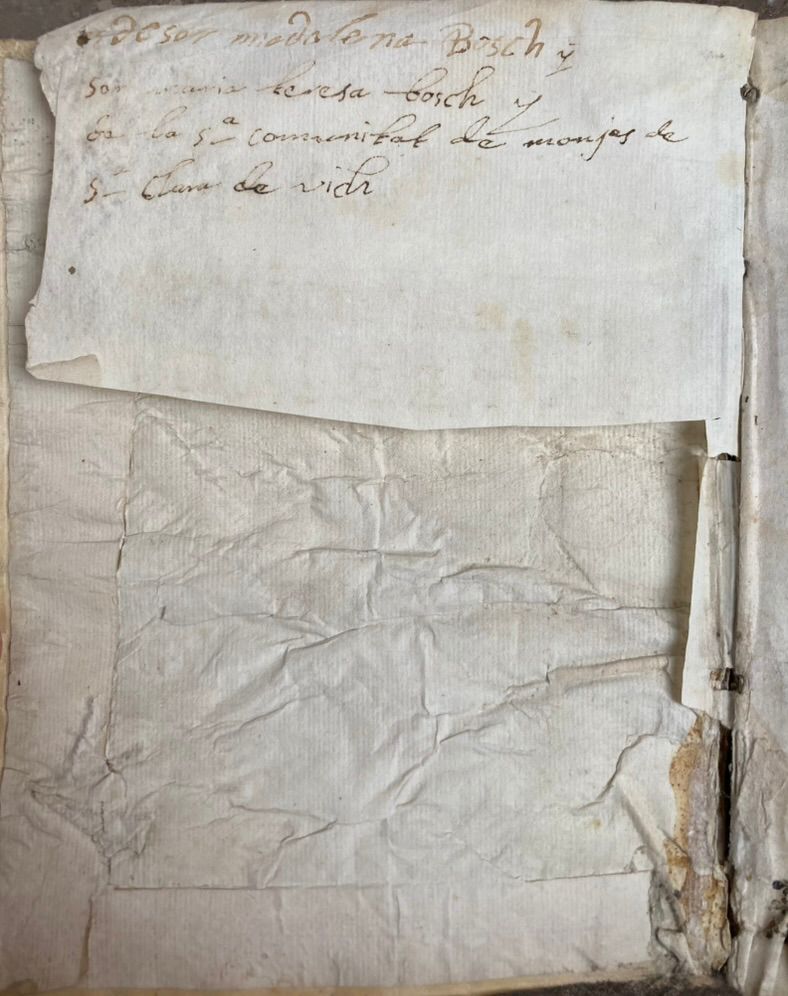 de sor madalena Bosch y
sor maria teresa bosch y
de la Sᵃ comunitat de monjas de
Sᵗᵃ Clara de vich